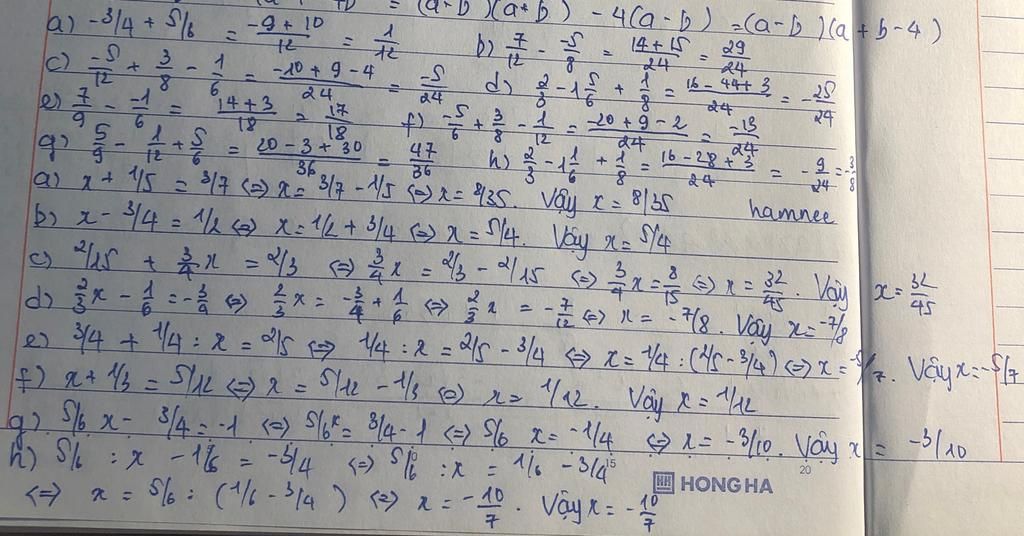 = (a-b)(a+b) - 4(a-b) = (a-b)(a+b-4)
a) -3/4 + 5/6 = \frac{-9+10}{12} = \frac{1}{12} b) \frac{7}{12} - \frac{-5}{8} = \frac{14+15}{24} = \frac{29}{24}
c) \frac{-5}{12} + \frac{3}{8} - \frac{1}{6} = \frac{-10+9-4}{24} = \frac{-5}{24} d) \frac{2}{3} - 1\frac{5}{6} + \frac{1}{8} = \frac{16-44+3}{24} = -\frac{25}{24}
e) \frac{7}{9} - \frac{-1}{6} = \frac{14+3}{18} = \frac{17}{18} f) \frac{-5}{6} + \frac{3}{8} - \frac{1}{12} = \frac{-20+9-2}{24} = \frac{-13}{24}
g) \frac{5}{9} - \frac{1}{12} + \frac{5}{6} = \frac{20-3+30}{36} = \frac{47}{36} h) \frac{2}{3} - 1\frac{1}{6} + \frac{1}{8} = \frac{16-28+3}{24} = -\frac{9}{24} = -\frac{3}{8}
a) x + 1/5 = 3/7 <=> x = 3/7 - 1/5 <=> x = 8/35. Vậy x = 8/35 hamnee
b) x - 3/4 = 1/2 <=> x = 1/2 + 3/4 <=> x = 5/4. Vậy x = 5/4
c) 2/15 + \frac{3}{4}x = 2/3 <=> \frac{3}{4}x = 2/3 - 2/15 <=> \frac{3}{4}x = \frac{8}{15} <=> x = \frac{32}{45}. Vậy x = \frac{32}{45}
d) \frac{2}{3}x - \frac{1}{6} = -\frac{3}{4} <=> \frac{2}{3}x = -\frac{3}{4} + \frac{1}{6} <=> \frac{2}{3}x = -\frac{7}{12} <=> x = -7/8. Vậy x = -7/8
e) 3/4 + 1/4 : x = 2/5 <=> 1/4 : x = 2/5 - 3/4 <=> x = 1/4 : (2/5 - 3/4) <=> x = -5/7. Vậy x = -5/7
f) x + 1/3 = 5/12 <=> x = 5/12 - 1/3 <=> x = 1/12. Vậy x = 1/12
g) 5/6 x - 3/4 = -1 <=> 5/6 x = 3/4 - 1 <=> 5/6 x = -1/4 <=> x = -3/10. Vậy x = -3/10
h) 5/6 : x - 1/6 = -3/4 <=> 5/6 : x = 1/6 - 3/4 15 20
HONG HA
<=> x = 5/6 : (1/6 - 3/4) <=> x = -\frac{10}{7}. Vậy x = -\frac{10}{7}